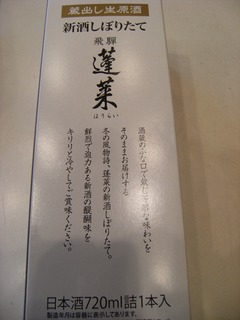 蔵出し生原酒
新酒しぼりたて
飛騨
蓬莱
ほうらい
酒蔵のすな口で飲む芳醇な味わいを
そのままお届けする
冬の風物詩、蓬莱の新酒しぼりたて。
鮮烈で迫力ある新酒の醍醐味を
キリリと冷やしてご賞味ください。
日本酒720ml詰1本入
製造年月は容器に表示しております。